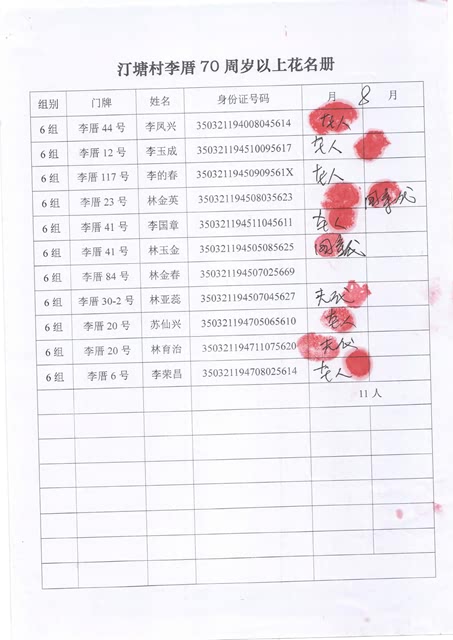 汀塘村李厝 70 周岁以上花名册
组别 门牌 姓名 身份证号码 月 8 月
6 组 李厝 44 号 李凤兴 350321194008045614 本人
6 组 李厝 12 号 李玉成 350321194510095617 本人
6 组 李厝 117 号 李的春 35032119450909561X 本人
6 组 李厝 23 号 林金英 350321194508035623
6 组 李厝 41 号 李国章 350321194511045611 本人
6 组 李厝 41 号 林玉金 350321194505085625
6 组 李厝 84 号 林金春 350321194507025669
6 组 李厝 30-2 号 林亚蕊 350321194507045627 夫代
6 组 李厝 20 号 苏仙兴 350321194705065610 本人
6 组 李厝 20 号 林育治 350321194711075620 夫代
6 组 李厝 6 号 李荣昌 350321194708025614 本人
11 人